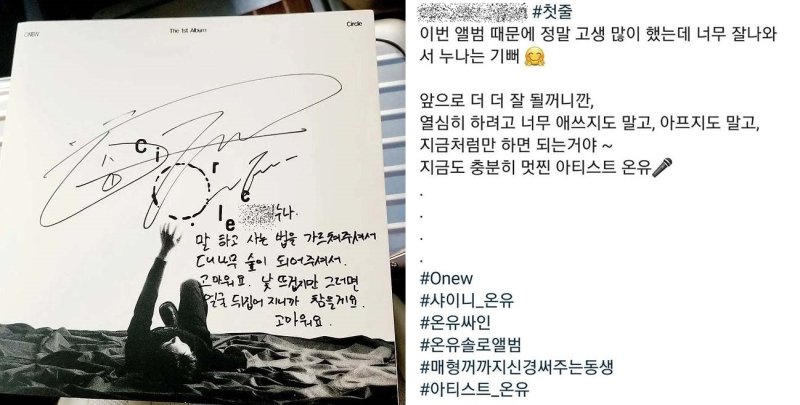 ONEW
The 1st Album
Circle
ci
r
c
le
누나.
말 하고 사는 법을 가르쳐주셔서
대나무 숲이 되어주셔서.
고마워요. 낯 뜨겁지만 그러면
얼굴 뒤집어 지니까 참을게요.
고마워요.
#첫줄
이번 앨범 때문에 정말 고생 많이 했는데 너무 잘나와
서 누나는 기뻐 🤗
앞으로 더 더 잘 될꺼니깐,
열심히 하려고 너무 애쓰지도 말고, 아프지도 말고,
지금처럼만 하면 되는거야 ~
지금도 충분히 멋찐 아티스트 온유🎤
.
.
.
.
#Onew
#샤이니_온유
#온유싸인
#온유솔로앨범
#매형꺼까지신경써주는동생
#아티스트_온유